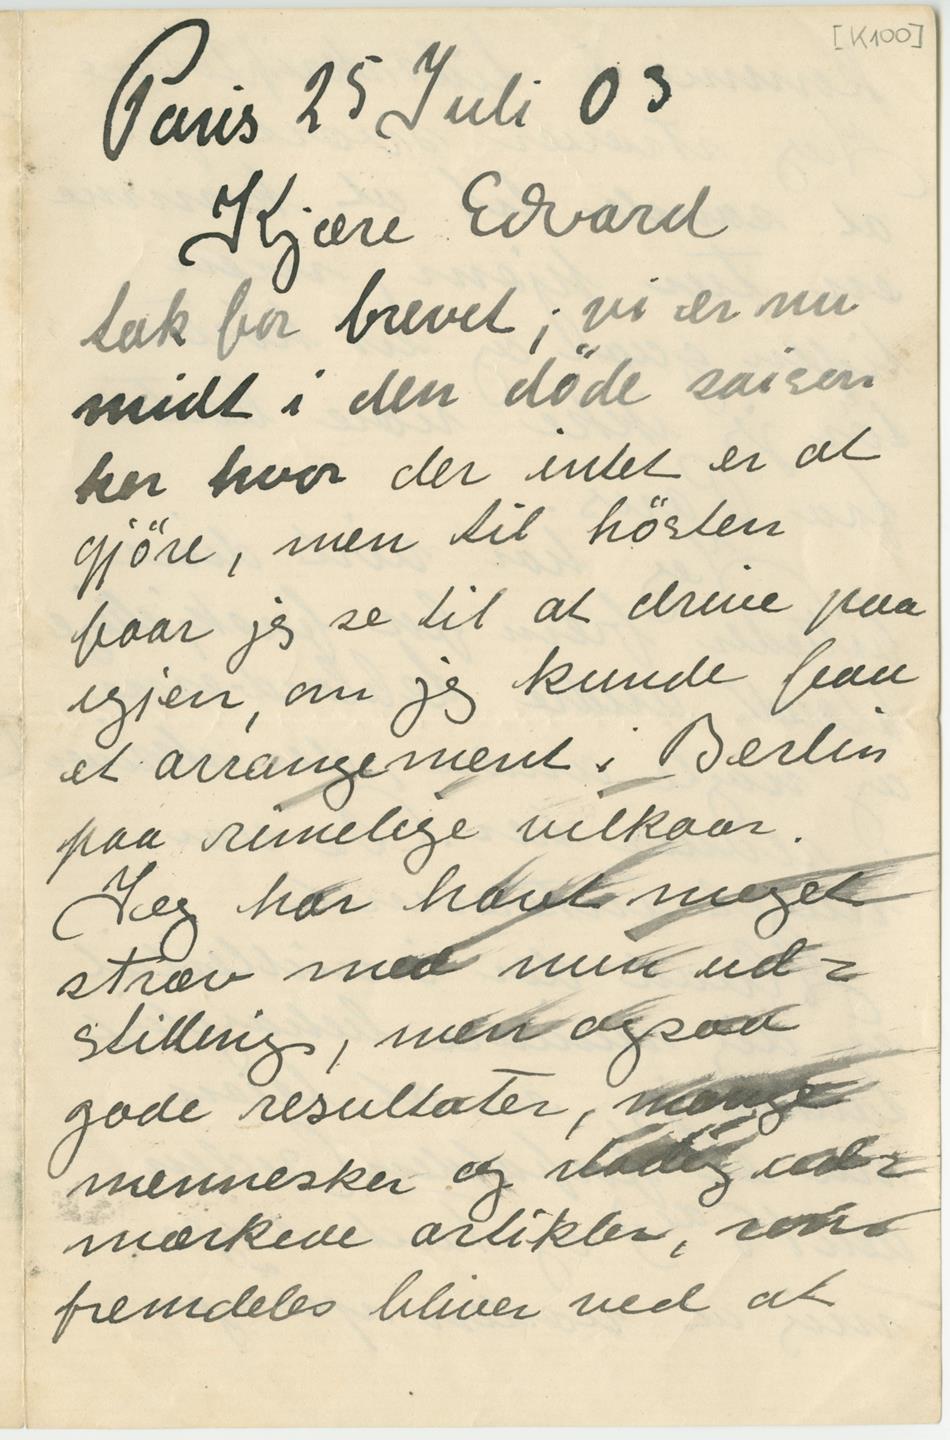 [K100]
Paris 25 Juli 03
Kjære Edvard
tak for brevet; vi er nu
midt i den döde saison
her hvor der intet er at
gjöre, men til hösten
faar jeg se til at drive paa
igjen, om jeg kunde faa
et arrangement i Berlin
paa rimelige vilkaar.
Jeg har havt meget
stræv med min ud-
stilling, men ogsaa
gode resultater, mange
mennesker og stadig ud-
mærkede artikler, som
fremdeles bliver ved at